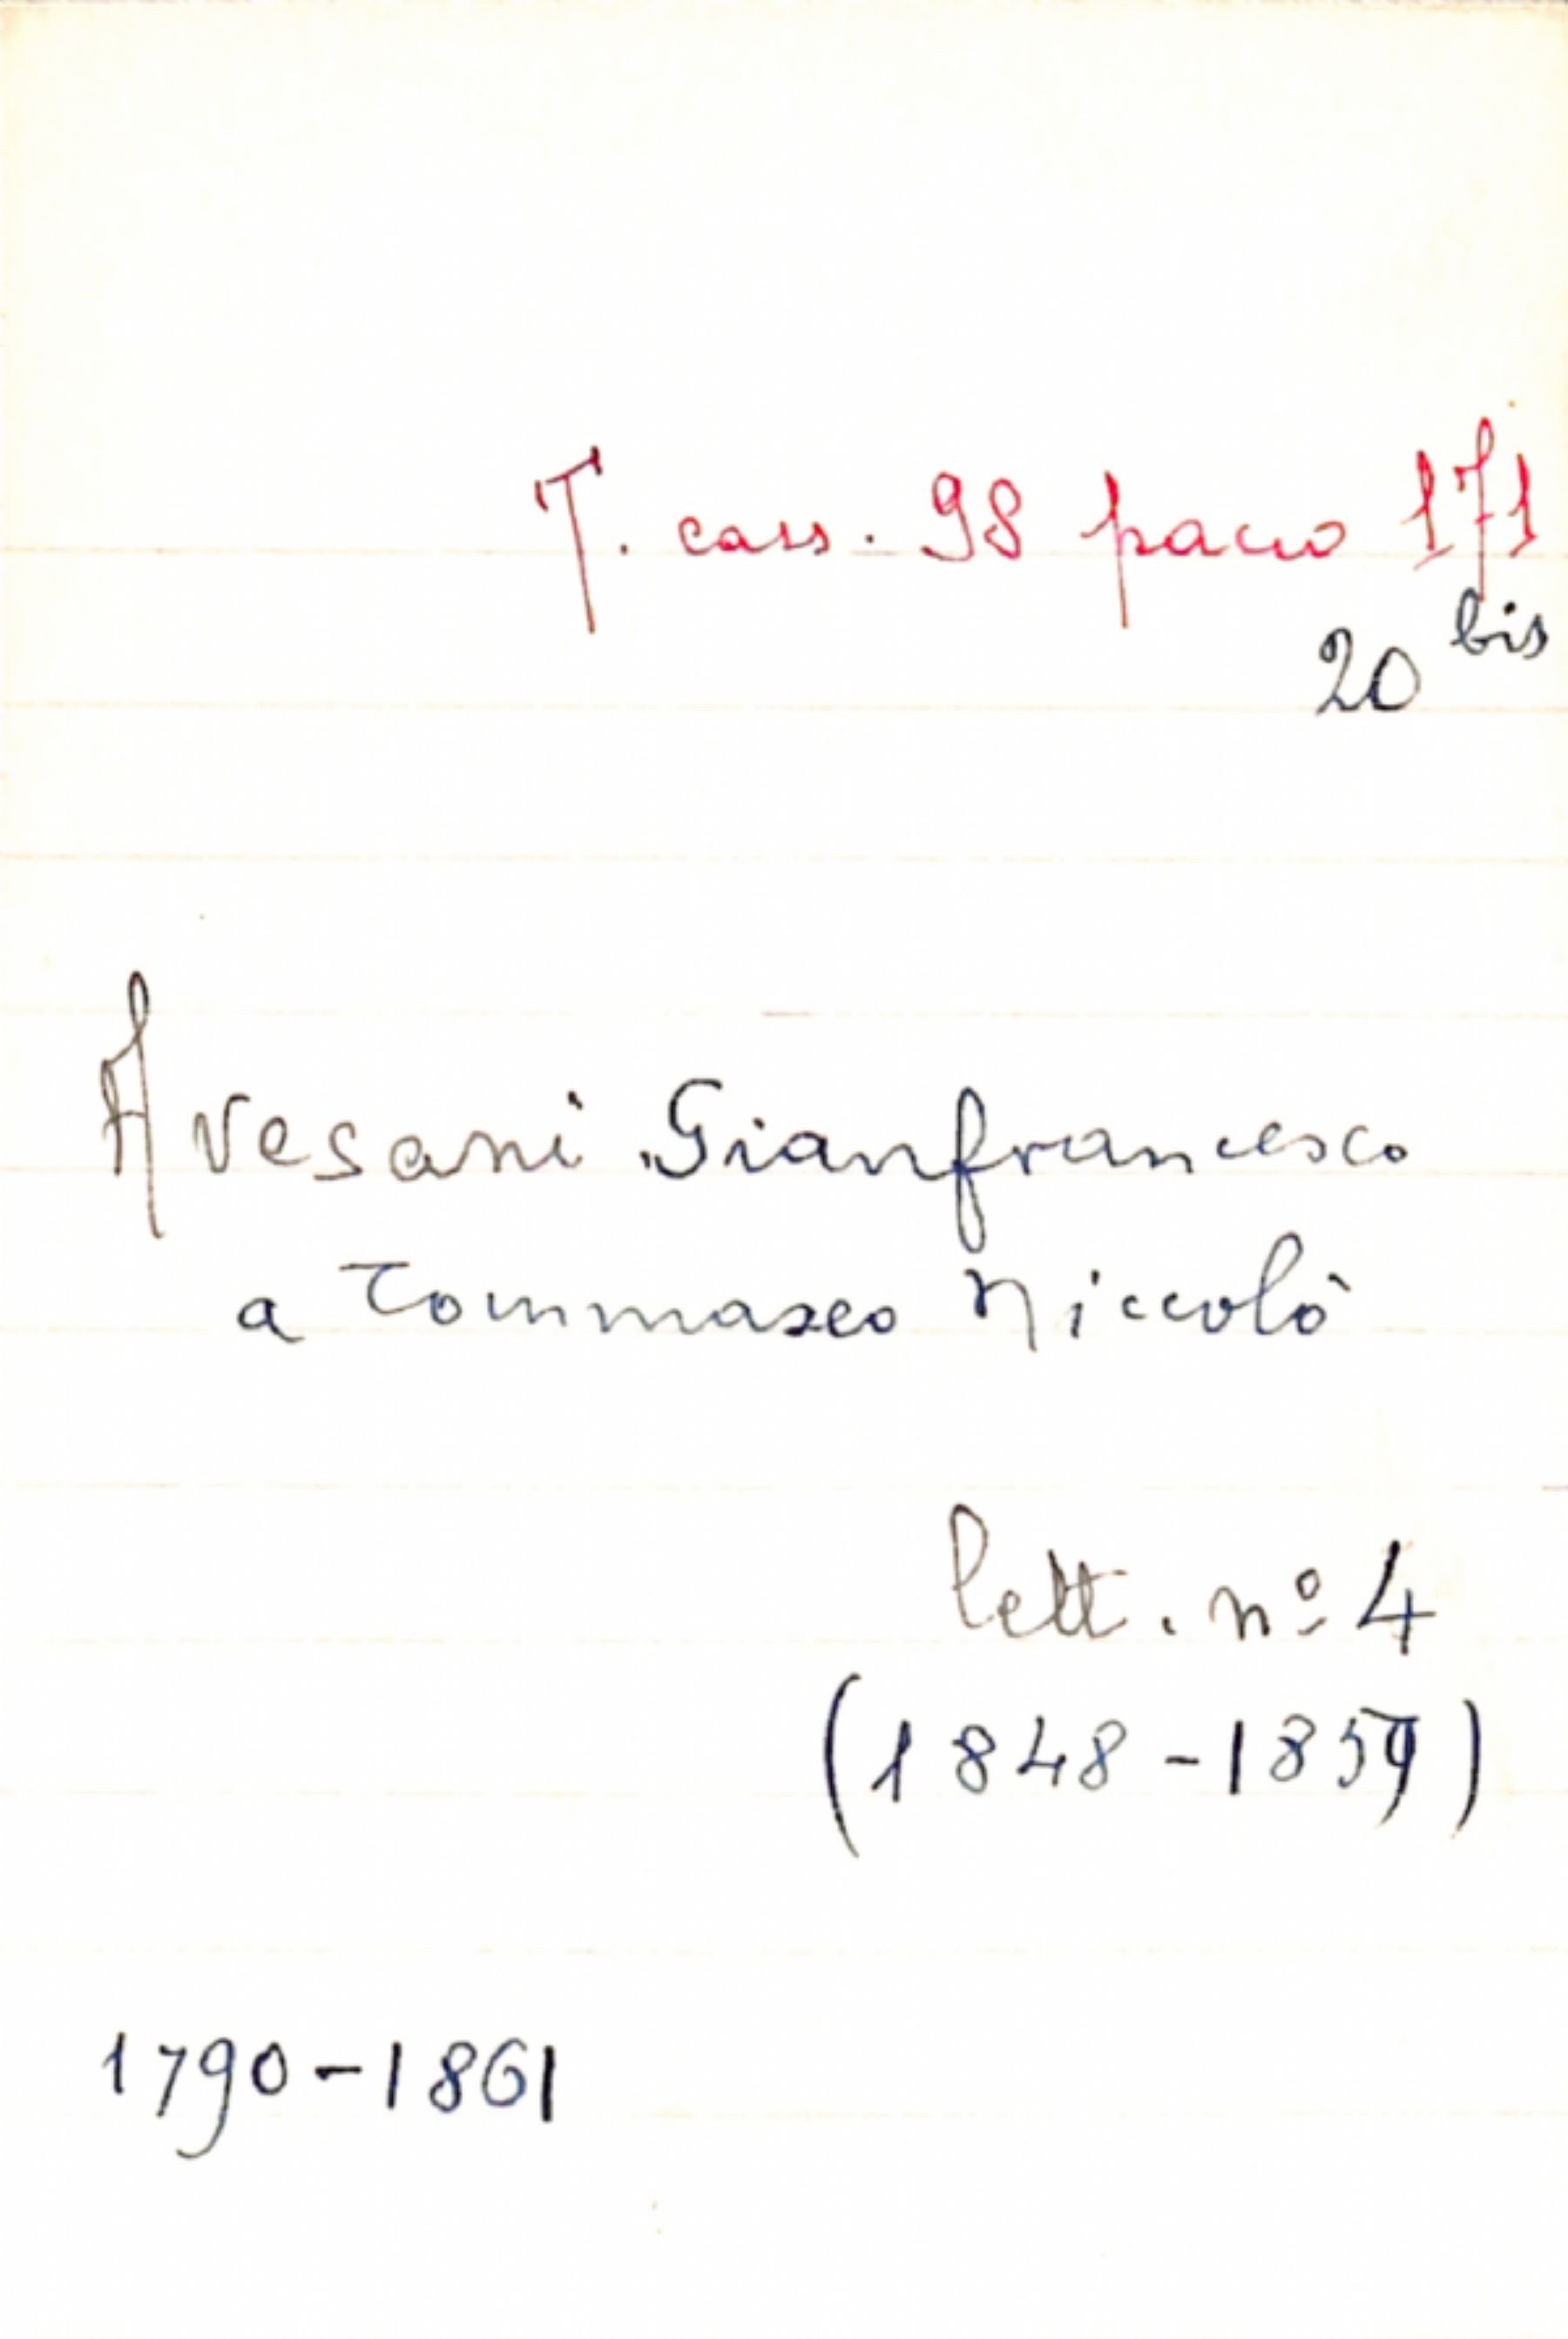 T. cass. 98 pacco 171
20 bis
Avesani Gianfrancesco
a Tommaseo Niccolò
lett. nº 4
(1848-1859)
1790-1861